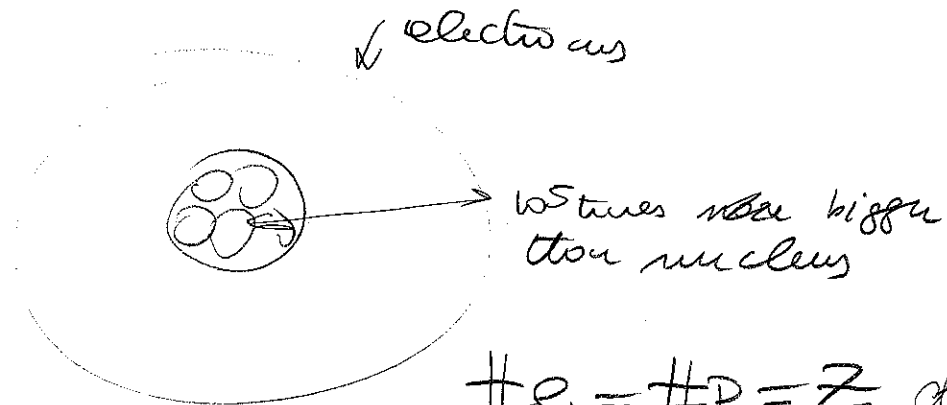 electrons
10⁵ times bigger
than nucleus
#e = #P = Z